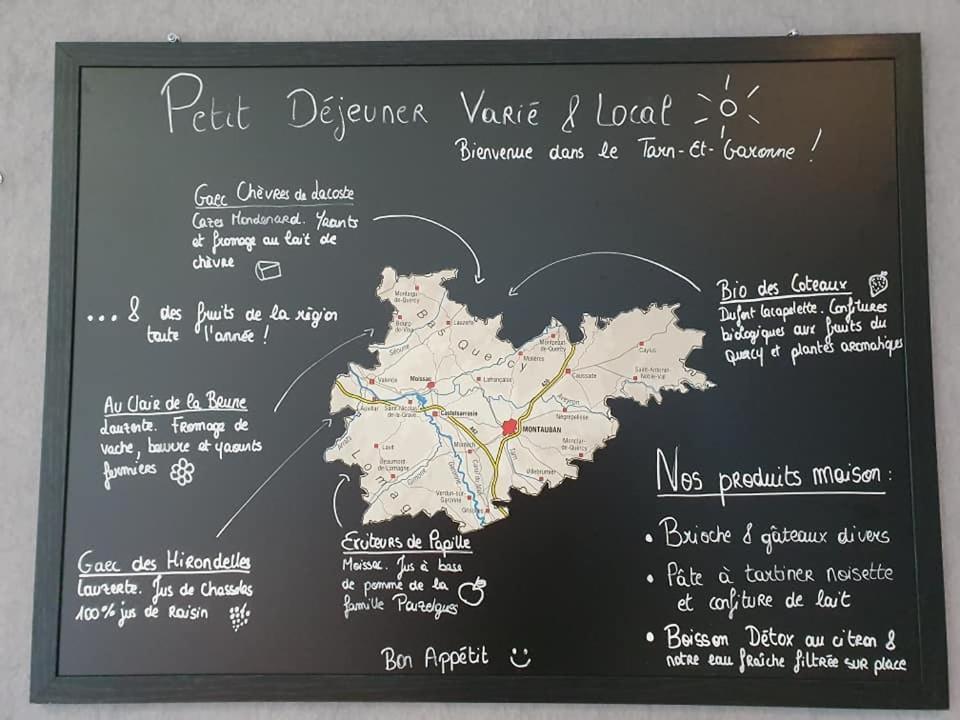 Petit Déjeuner Varié & Local
Bienvenue dans le Tarn-Et-Garonne !
Gaec Chèvres de Lacoste
Cazes Mondenard. Yaourts
et fromage au lait de
chèvre
... & des fruits de la région
toute l'année !
Bio des Coteaux
Dufort Lacapelette. Confitures
biologiques aux fruits du
Quercy et plantes aromatiques
Au Clair de la Beune
Lauzerte. Fromage de
vache, beurre et yaourts
fermiers
Gaec des Hirondelles
Lauzerte. Jus de Chasselas
100% jus de Raisin
Moissac. Jus à base
de pomme de la
famille
Nos produits maison :
• Brioche & gâteaux divers
• Pâte à tartiner noisette
et confiture de lait
• Boisson Détox au citron &
notre eau fraîche filtrée sur place
Bon Appétit
Montaigu-
de-Quercy
Bourg-
de-Visa
Lauzerte
Bas Quercy
Séoune
Molières
Montpezat-
de-Quercy
Caylus
Caussade
Saint-Antonin-
Noble-Val
Valence
Moissac
Lafrançaise
A20
Auvillar
Saint-Nicolas-
de-la-Grave
Castelsarrasin
Aveyron
Nègrepelisse
MONTAUBAN
Arrats
Lavit
Montech
Monclar-
de-Quercy
Beaumont-
de-Lomagne
Lomag
Gimone
Garonne
Tarn
Villebrumier
Verdun-sur-
Garonne
Grisolles